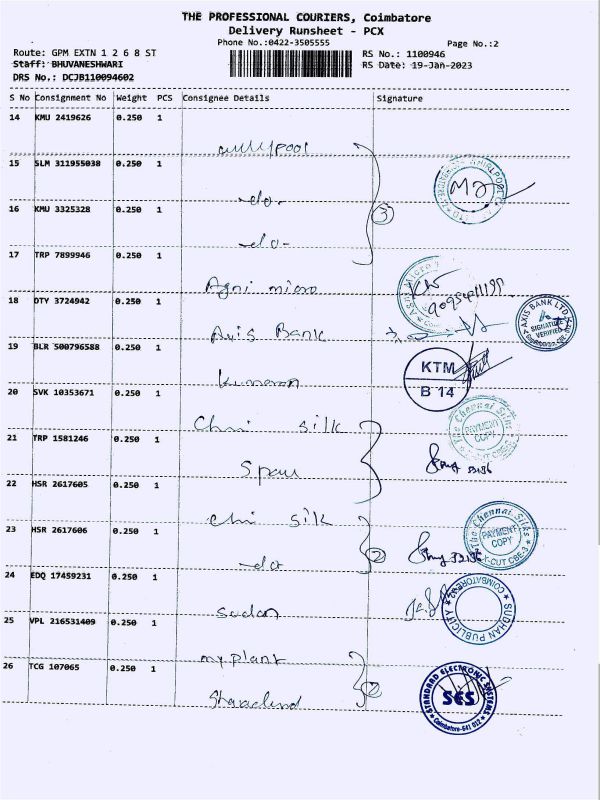 THE PROFESSIONAL COURIERS, Coimbatore
Delivery Runsheet - PCX
Phone No.:0422-3505555
Page No.:2
Route: GPM EXTN 1 2 6 8 ST
RS No.: 1100946
Staff: BHUVANESHWARI
RS Date: 19-Jan-2023
DRS No.: DCJB110094602
S No Consignment No Weight PCS Consignee Details Signature
14 KMU 2419626 0.250 1
15 SLM 311955038 0.250 1
-do-
16 KMU 3325328 0.250 1
3
-do-
17 TRP 7899946 0.250 1
Agni micro
18 DTY 3724942 0.250 1
Axis Bank
AXIS BANK LTD
SIGNATURE VERIFIED
19 BLR 500796588 0.250 1
Kumaran
KTM
B 14
20 SVK 10353671 0.250 1
silk
The Chennai Silks
PAYMENT COPY
21 TRP 1581246 0.250 1
22 HSR 2617605 0.250 1
silk
The Chennai Silks
PAYMENT COPY
23 HSR 2617606 0.250 1
2
24 EDQ 17459231 0.250 1
SUDHAN PUBLICITY
25 VPL 216531409 0.250 1
my plant
26 TCG 107065 0.250 1
2
STANDARD ELECTRONIC SYSTEMS
SES
Coimbatore-641 012